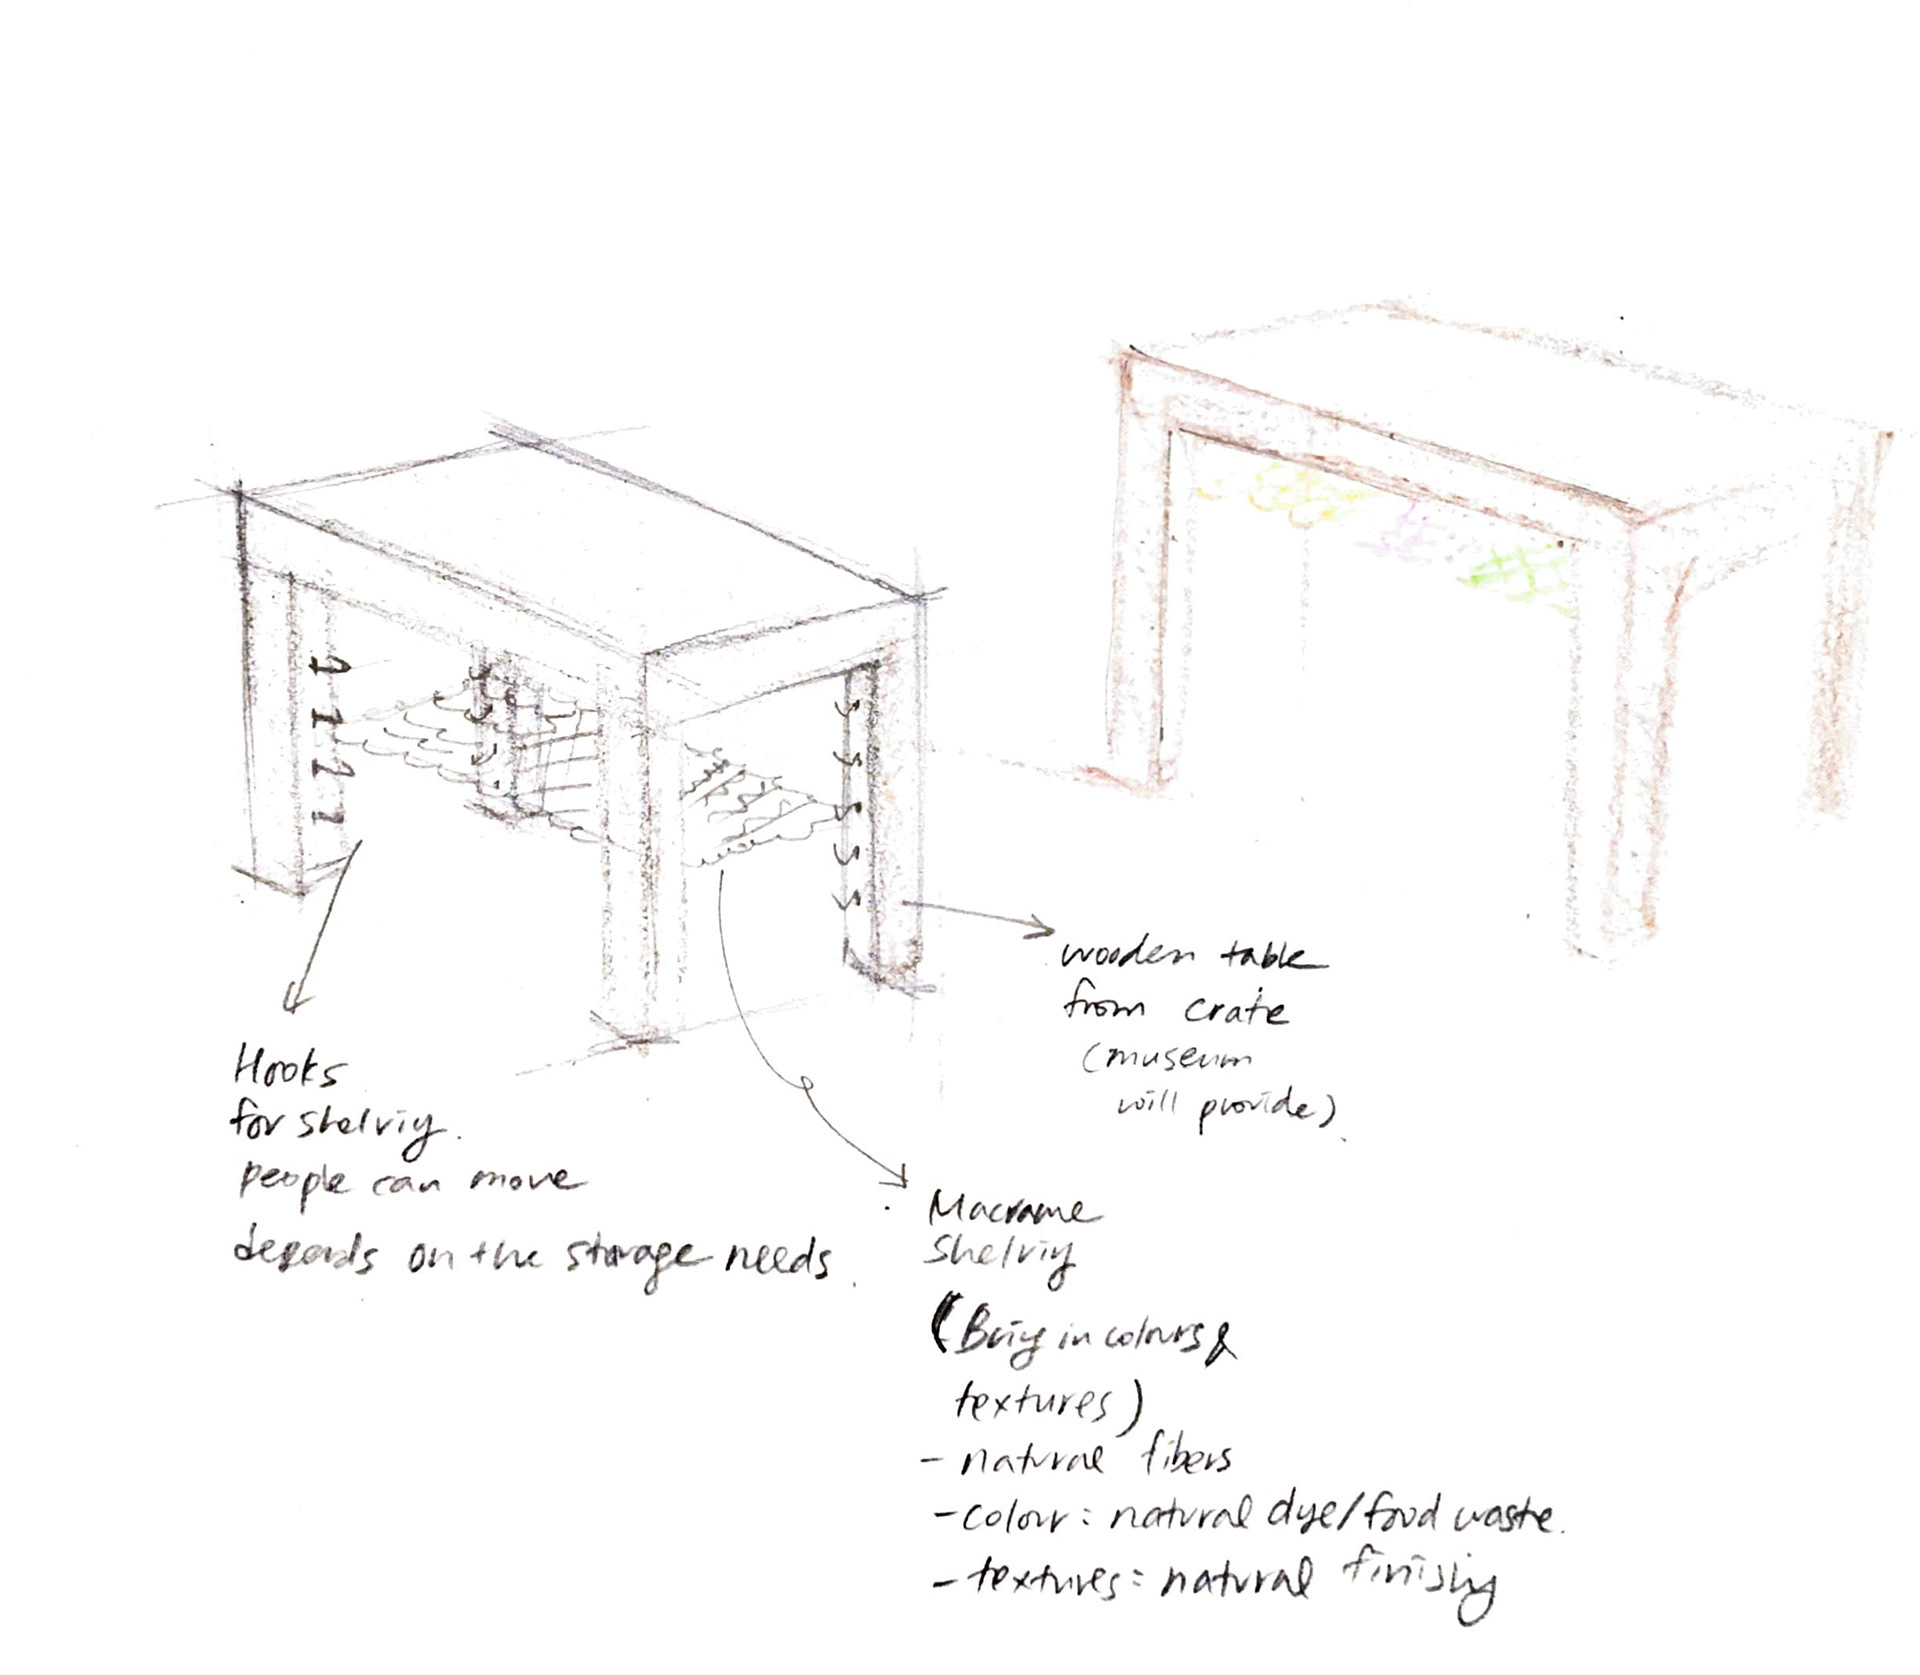 Hooks
for shelving.
people can move
depends on the storage needs.
wooden table
from crate
(museum
will provide)
Macrame
shelving
(Bring in colours &
textures)
- natural fibers
- colour: natural dye/food waste.
- textures: natural finishing